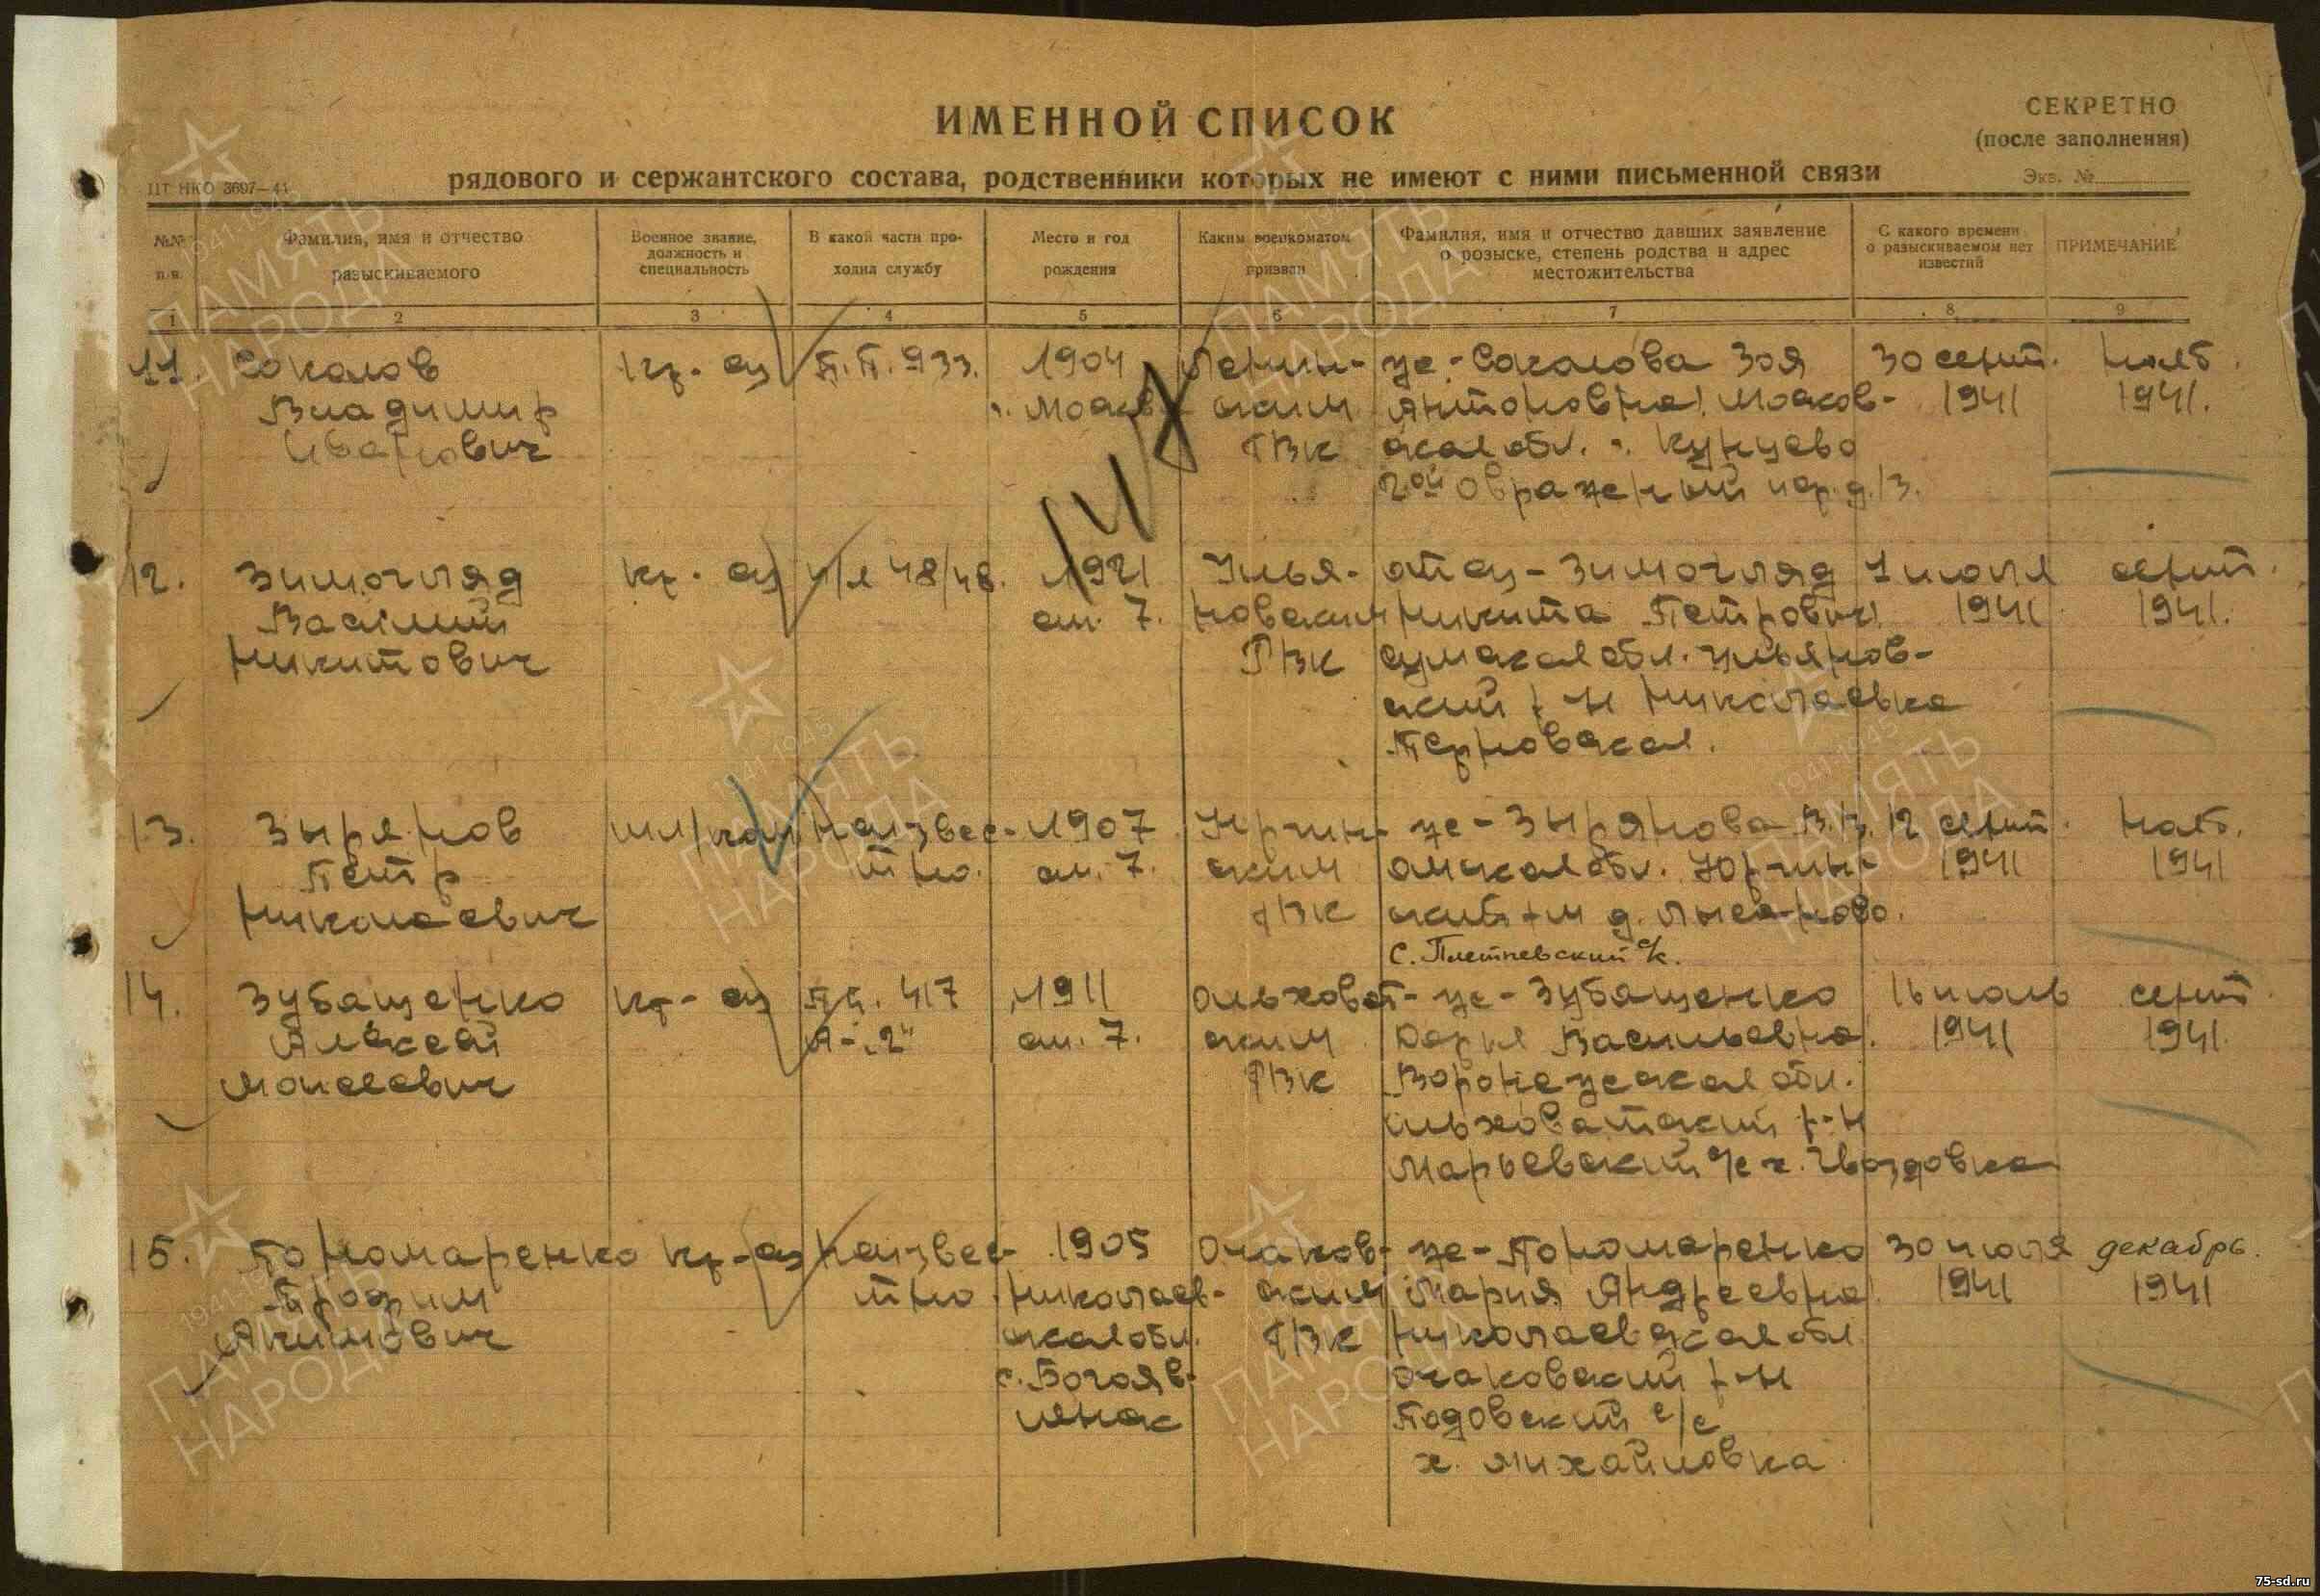 ИМЕННОЙ СПИСОК
СЕКРЕТНО
(после заполнения)
ЦТ НКО 3697—41
рядового и сержантского состава, родственники которых не имеют с ними письменной связи
Экз. №
№№ п.п.
Фамилия, имя и отчество разыскиваемого
Военное звание, должность и специальность
В какой части проходил службу
Место и год рождения
Каким военкоматом призван
Фамилия, имя и отчество давших заявление о розыске, степень родства и адрес местожительства
С какого времени о разыскиваемом нет известий
ПРИМЕЧАНИЕ
1 2 3 4 5 6 7 8 9
11. Соколов кр-ец П.П. 933. 1904 Ленин- же-Соколова Зоя 30 сент. нояб.
Владимир г. Москв ским Антоновна! Москов- 1941 1941.
Иванович ГВК ская обл. г. Кунцево
2ой Овражный пер. д. 13.
12. Зимогляд кр-ец п/я 48/48. 1921 Улья- отец-Зимогляд 1 июля сент.
Василий ст. 7. новским Никита Петрович! 1941 1941.
Никитович РВК Сумская обл. Ульянов-
ский р-н Николаевка
Терновская.
13. Зырянов мл/ком. неизвес- 1907 Юргин- же-Зырянова В.З. 12 сент. нояб.
Петр тно. ст. 7. ским Омская обл. Юргин- 1941 1941
Николаевич РВК ский р-н д.
С. Плетневский с/с.
14. Зубащенко кр-ец П.П. 417 1911 Ольховат- же-Зубащенко 16 июль сент.
Алексей Я-"2" ст. 7. ским Дарья Васильевна! 1941 1941.
Моисеевич РВК Воронежская обл.
Ольховатский р-н
Марьевский с/с х. Гвоздовка
15. Пономаренко кр-ец неизвес- 1905 Очаков- же-Пономаренко 30 июля декабрь.
Трофим тно. Николаев- ским Мария Андреевна! 1941 1941
Акимович ская обл. РВК Николаевская обл
с. Богояв- Очаковский р-н
ленск Подовский с/с
х. Михайловка
ПАМЯТЬ НАРОДА
1941-1945
75-sd.ru